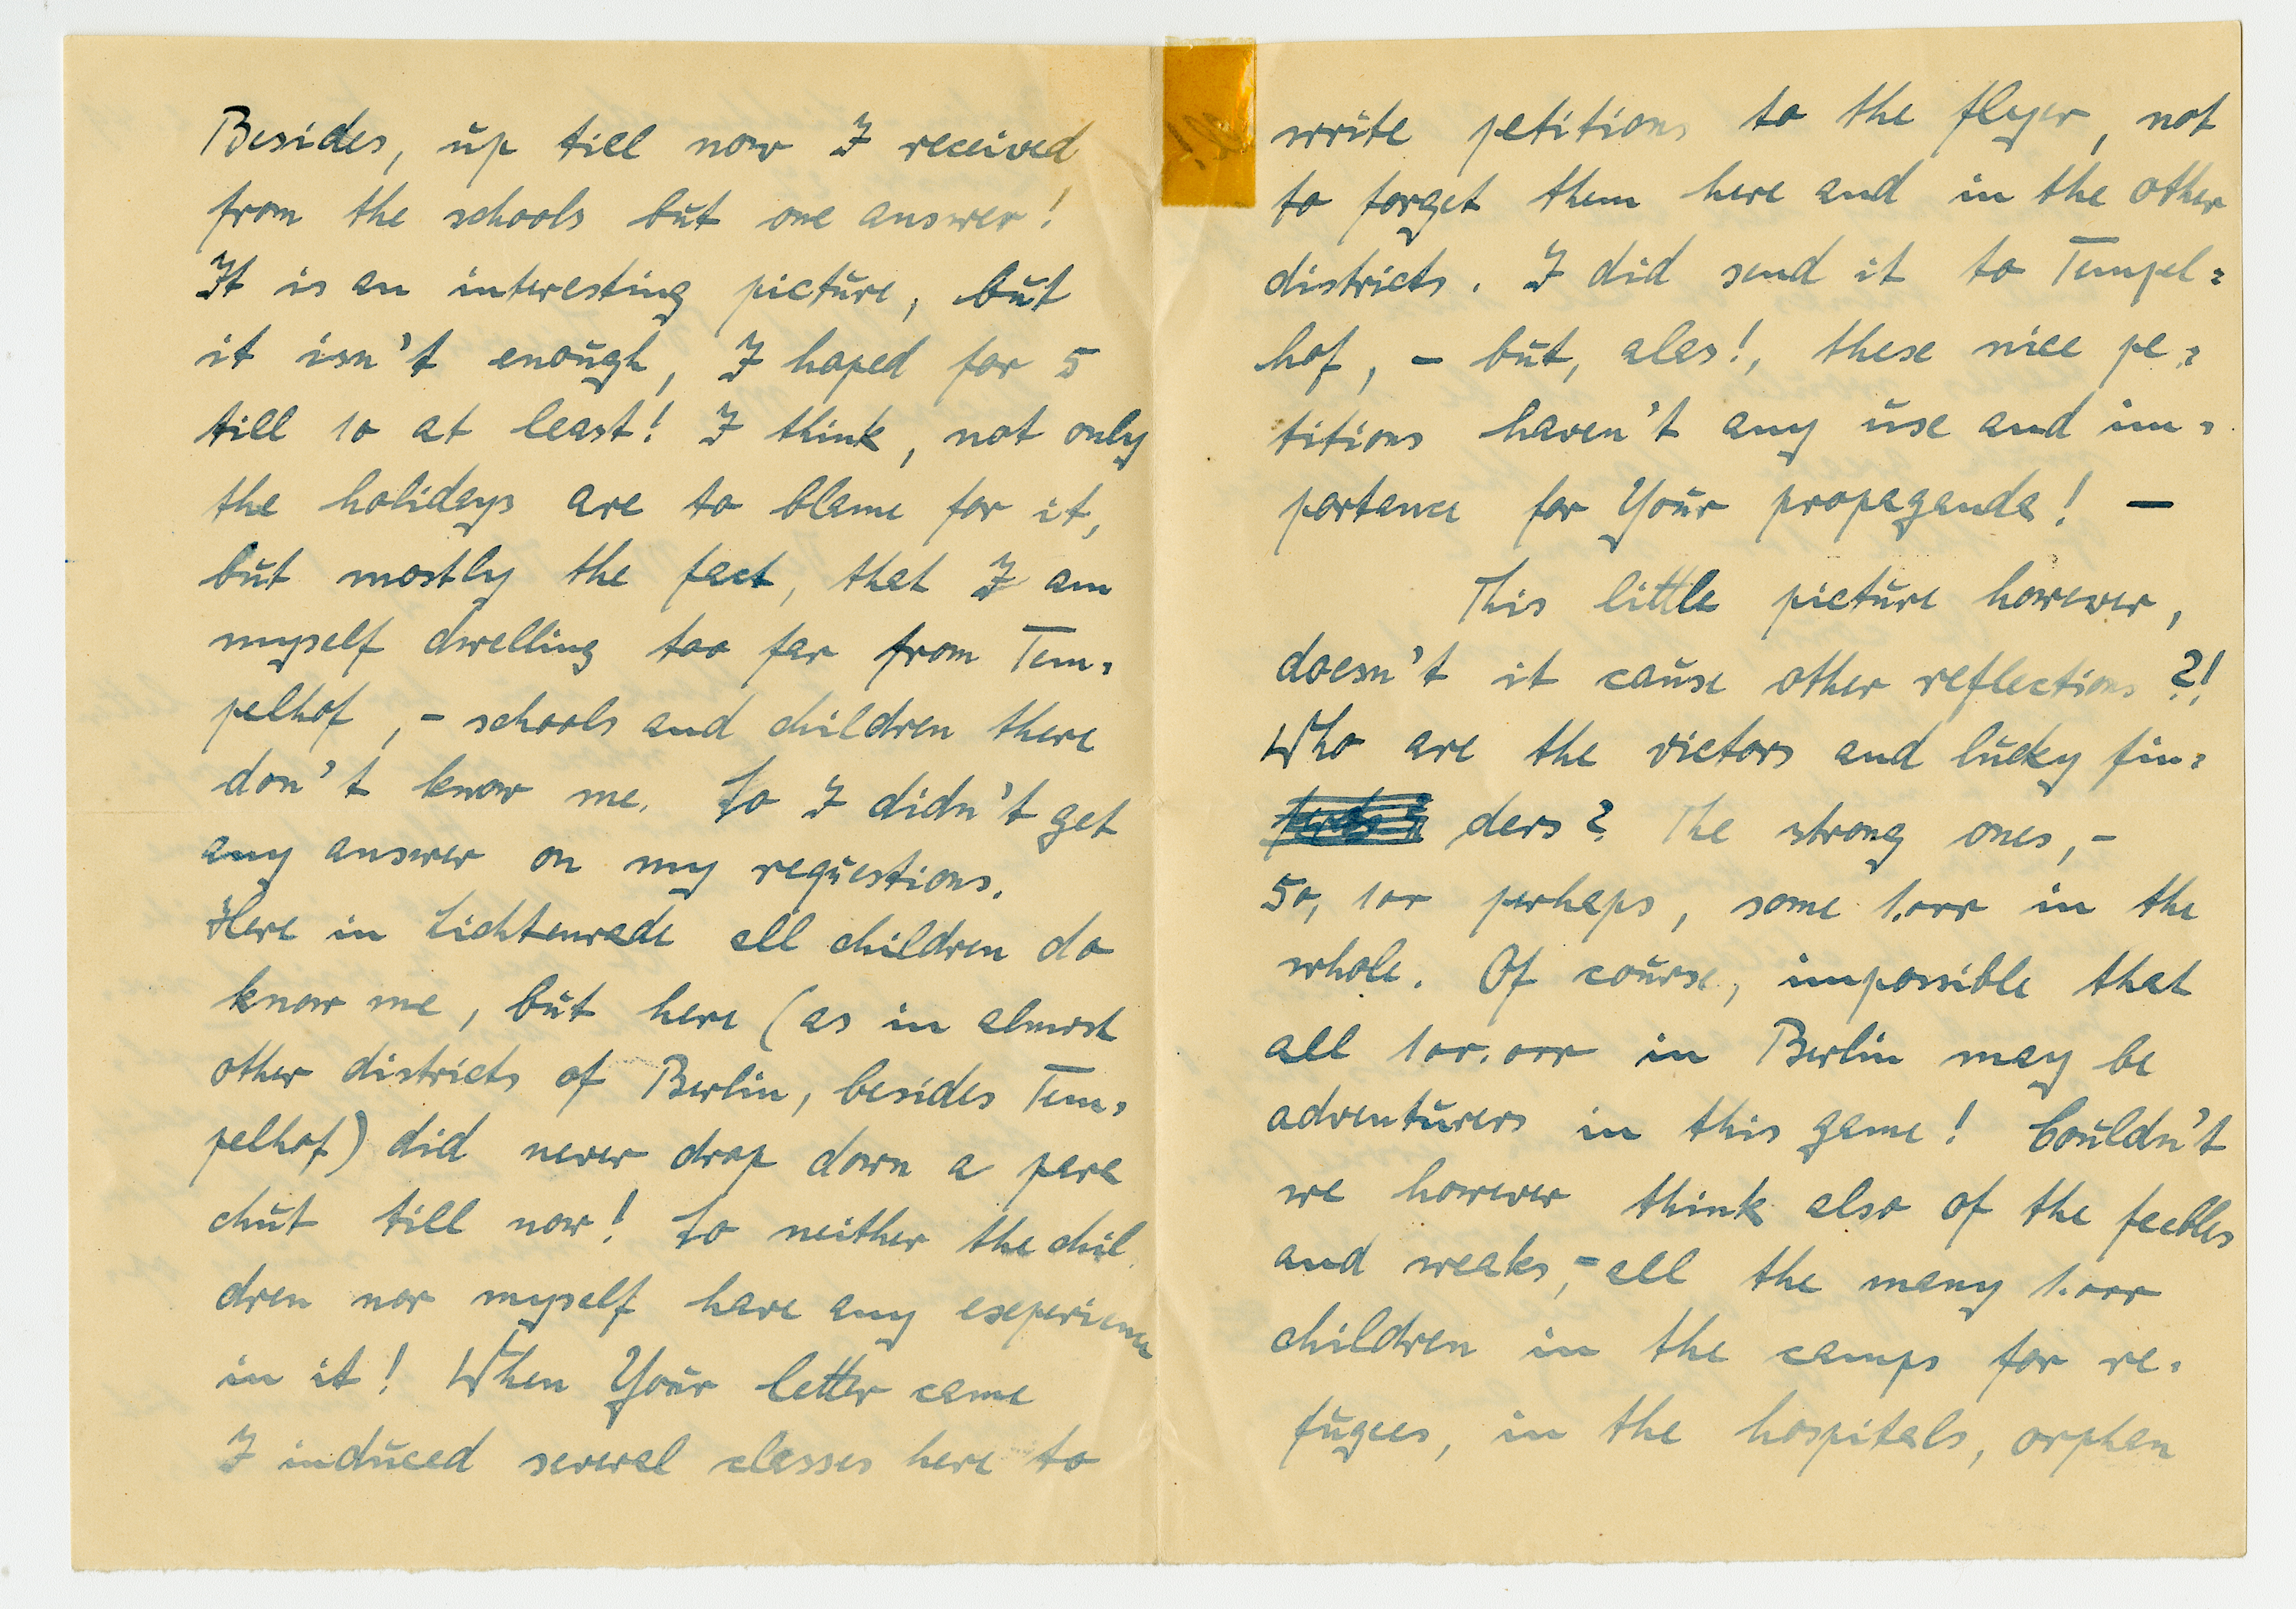 Besides, up till now I received
from the schools but one answer!
It is an interesting picture, but
it isn't enough, I hoped for 5
till 10 at least! I think, not only
the holidays are to blame for it,
but mostly the fact, that I am
myself dwelling too far from Tem=
pelhof, - schools and children there
don't know me. So I didn't get
any answer on my requestions.
Here in Lichtenrade all children do
know me, but here (as in almost
other districts of Berlin, besides Tem=
pelhof) did never drop down a para
chut till now! So neither the chil
dren nor myself have any experience
in it! When Your letter came
I induced several classes here to
write petitions to the flyer, not
to forget them here and in the other
districts. I did send it to Tempel=
hof, - but, alas!, these nice pe=
titions haven't any use and im=
portance for Your propaganda! -
This little picture however,
doesn't it cause other reflections?!
Who are the victors and lucky fin=
ders? The strong ones, -
50, 100 perhaps, some 1.000 in the
whole. Of course, impossible that
all 100.000 in Berlin may be
adventurers in this game! Couldn't
we however think also of the feebles
and weaks, = all the many 1.000
children in the camps for re=
fugees, in the hospitals, orphan